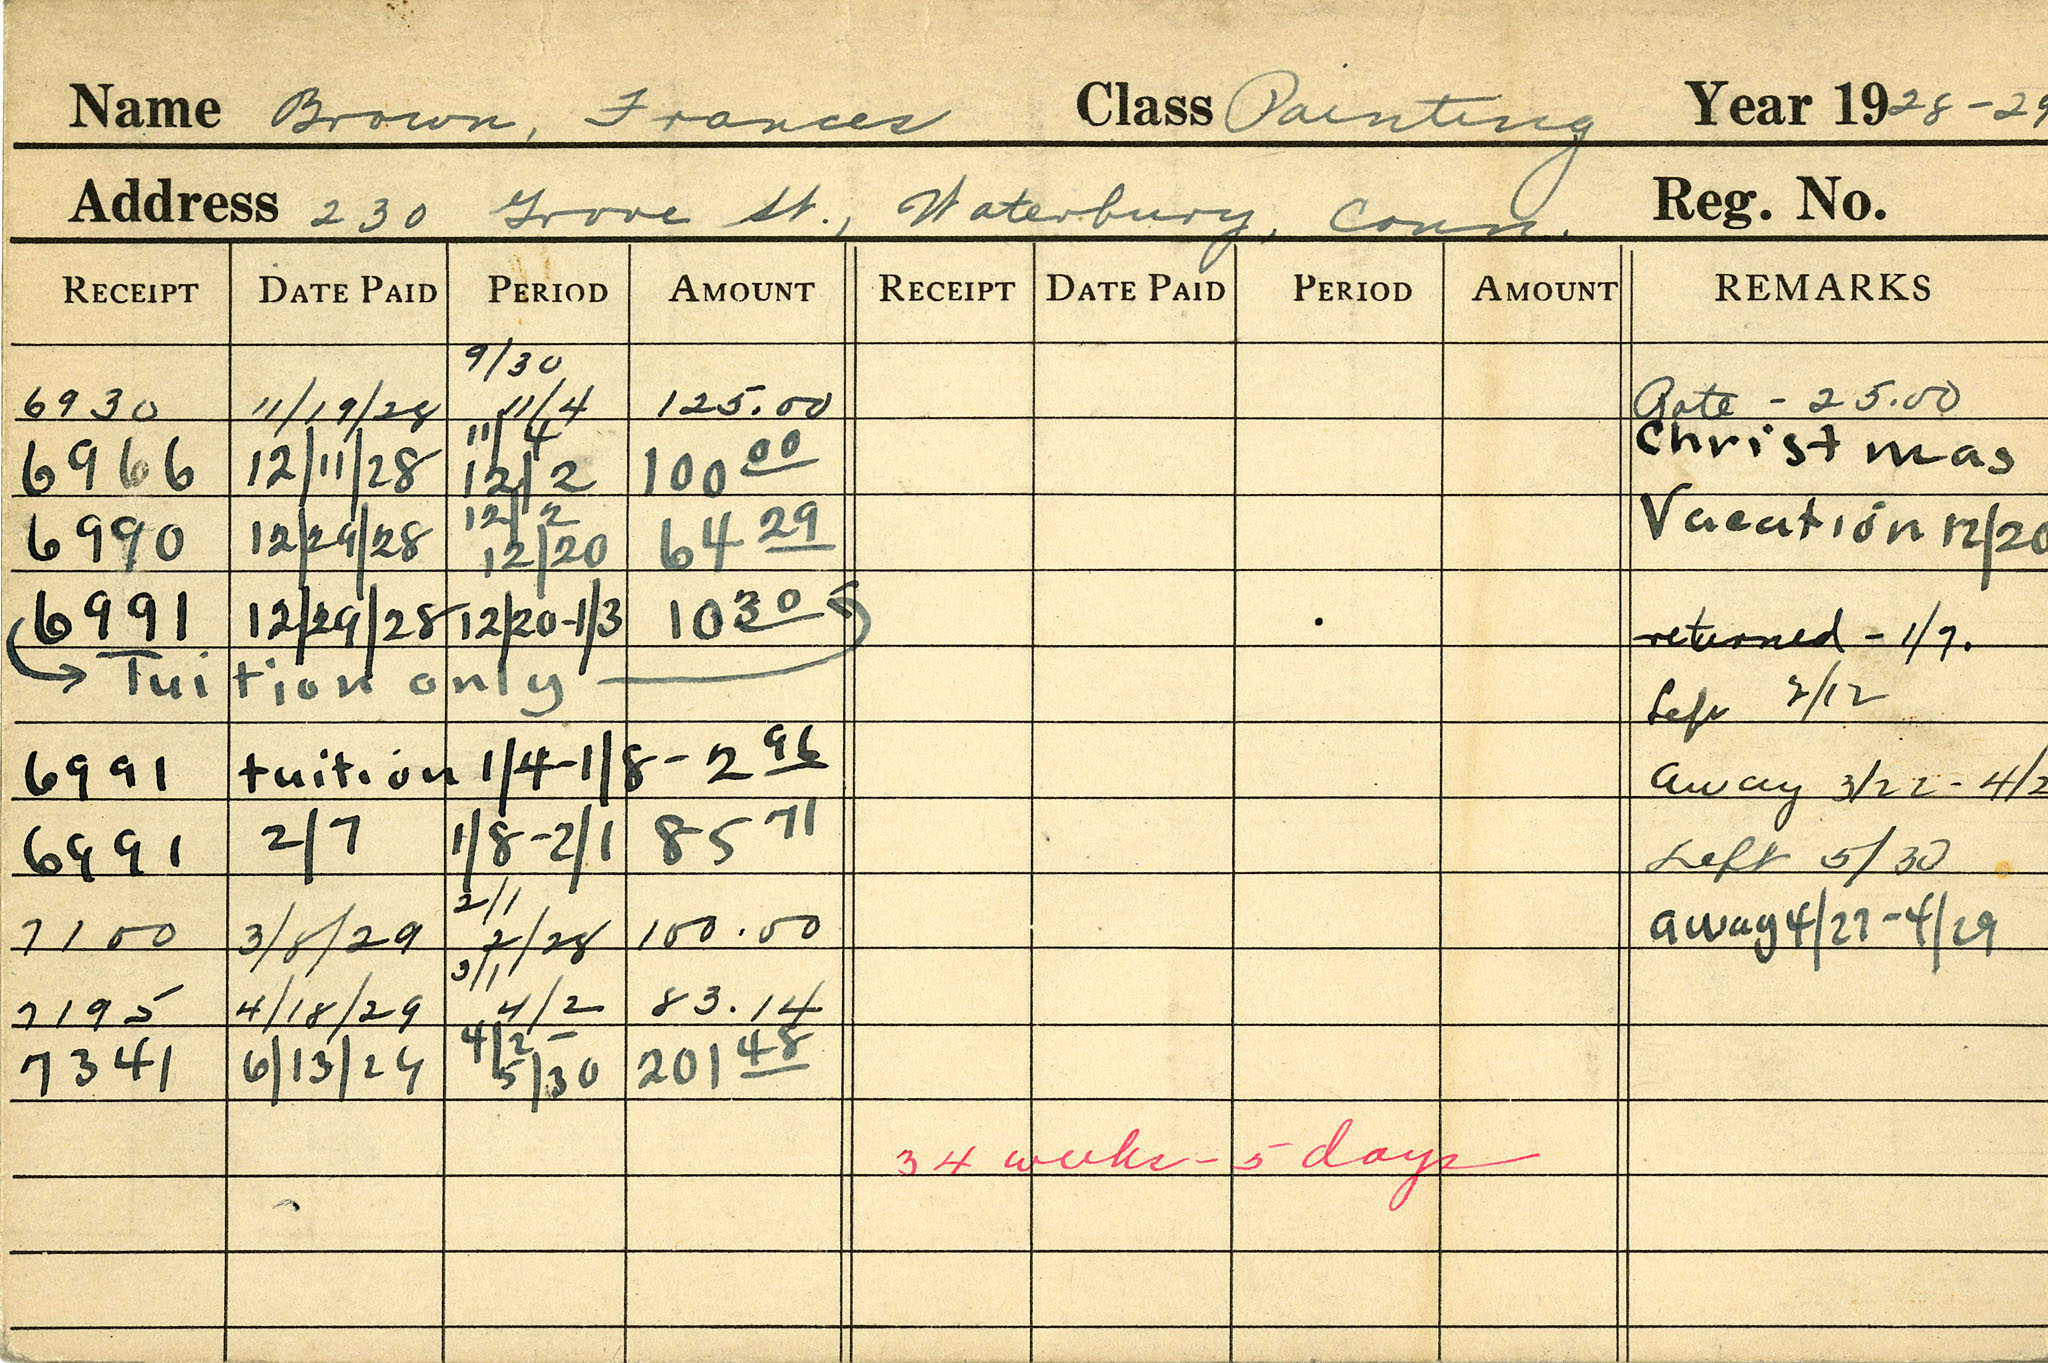 Name Brown, Frances Class Painting Year 1928-29
Address 230 Grove St., Waterbury, Conn. Reg. No.
RECEIPT DATE PAID PERIOD AMOUNT RECEIPT DATE PAID PERIOD AMOUNT REMARKS
9/30
6930 11/19/28 11/4 125.00 Rate - 25.00
11/4 Christmas
6966 12/11/28 12/2 100 00
12/2 Vacation 12/20
6990 12/29/28 12/20 64 29
6991 12/29/28 12/20-1/3 10 30 returned - 1/7.
Tuition only Left 2/12
6991 tuition 1/4-1/8 - 2 96 away 3/22 - 4/2
6991 2/7 1/8-2/1 85 71 Left 5/30
2/1
7100 3/8/29 2/28 100.00 away 4/27-4/29
3/1
7195 4/18/29 4/2 83.14
4/2 -
7341 6/13/29 5/30 201 48
34 weeks - 5 days